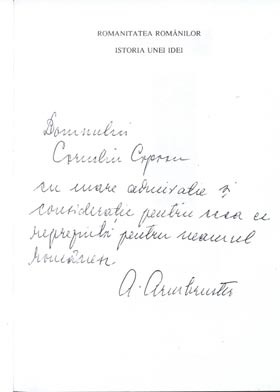 ROMANITATEA ROMÂNILOR
ISTORIA UNEI IDEI
Domnului
Corneliu Coposu
cu mare admirație și
considerație pentru
pentru neamul
românesc
A. Armbruster